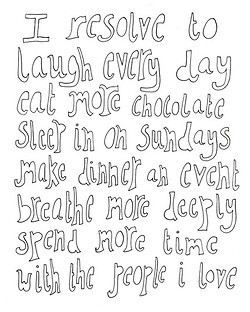 I resolve to
laugh every day
eat more chocolate
sleep in on sundays
make dinner an event
breathe more deeply
spend more time
with the people i love